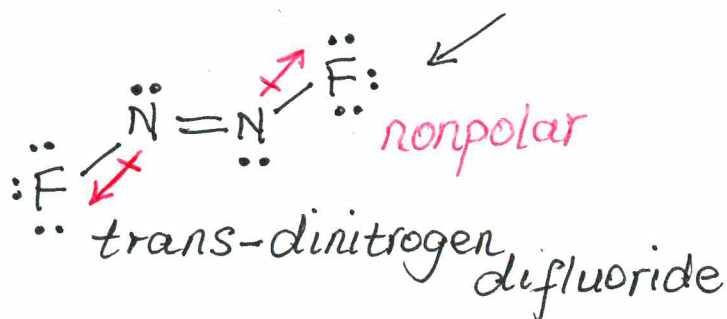 F
N = N F
nonpolar
F
trans-dinitrogen
difluoride